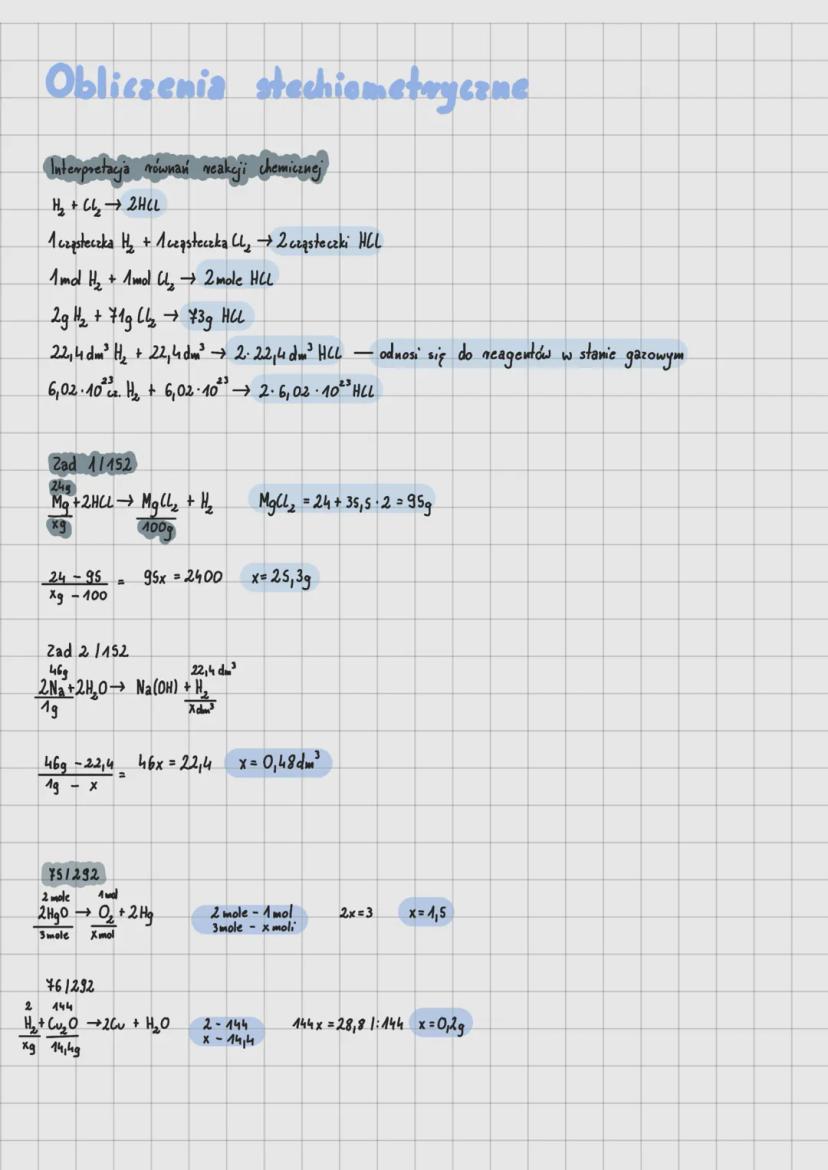 Obliczenia stechiometryczne
Interpretacja równań reakcji chemicznej
H₂ + Cl₂ → 2HCl
1 cząsteczka H₂ + 1 cząsteczka Cl₂ → 2 cząsteczki HCl
1mol H₂ + 1mol Cl₂ → 2 mole HCl
2g H₂ + 71g Cl₂ → 73g HCl
22,4 dm³ H₂ + 22,4 dm³ → 2·22,4 dm³ HCl — odnosi się do reagentów w stanie gazowym
6,02·10²³ cz. H₂ + 6,02·10²³ → 2·6,02·10²³ HCl
Zad 1/152
24g
Mg + 2HCl → MgCl₂ + H₂ MgCl₂ = 24 + 35,5·2 = 95g
xg 100g
24 - 95 = 95x = 2400 x = 25,3g
xg - 100
Zad 2/152
46g 22,4 dm³
2Na + 2H₂O → Na(OH) + H₂
1g x dm³
46g - 22,4 = 46x = 22,4 x = 0,48dm³
1g - x
75/292
2 mole 1 mol
2HgO → O₂ + 2Hg 2 mole - 1 mol 2x = 3 x = 1,5
3 mole x mol 3 mole - x moli
76/292
2 144
H₂ + Cu₂O → 2Cu + H₂O 2 - 144 144x = 28,8 /:144 x = 0,2g
xg 14,4g x - 14,4